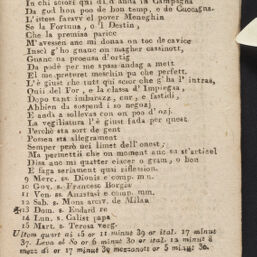 In chi sciori qui di, e anna in campagna
Da god bon poo de bon temp, e de Cuccagna.
L'istess faravv el pover Meneghin
Se la Fortuna, o 'l Destin,
Che la premisa parice
M'avessen anc mi donaa on toc de cavice
Insci gh'ho gnanc on magher cassinott,
Guanc na proeusa d'ortig
Da podè per me spass andagh a mett
El me preteret meschin pa che perfett.
L'è giust che tutt qui scior che g'ha l' intras,
Quii del For, e la classa d' Impiegaa,
Dopo tant imbarazz, cur, e fastidi,
Abbien da suspend i so negozj
E andà a sollevas con on poo d' ozi,
La vegliatura l'è giust fada per quest
Perchè sta sort de gent
Possen stà allegrament
Semper però nei limet dell'onest;
Ma permettii che on moment anc sa st'articol
Disa anc mi quatter ciicer o gram, o bon
E faga seriament qual riflession.
9 Merc. ss. Dionis. e comp. mm.
10 Gov. s. Francesc Borgia
11 Ven. ss. Anastasi e comp. mm.
12 Sab. s. Mona arciv. de Milan
13 Dom. s. Eduard re
14 Lun. s. Calist papa
15 Mart. s. Teresa verg.
Ultem quart ai 15 or 11 minut 39 or ital. 17 minut
37. Leva el So or 6 minut 30 or ital. 12 minut 8
mezz dì or 17 minut 39 mezzanott or 5 minut 30.